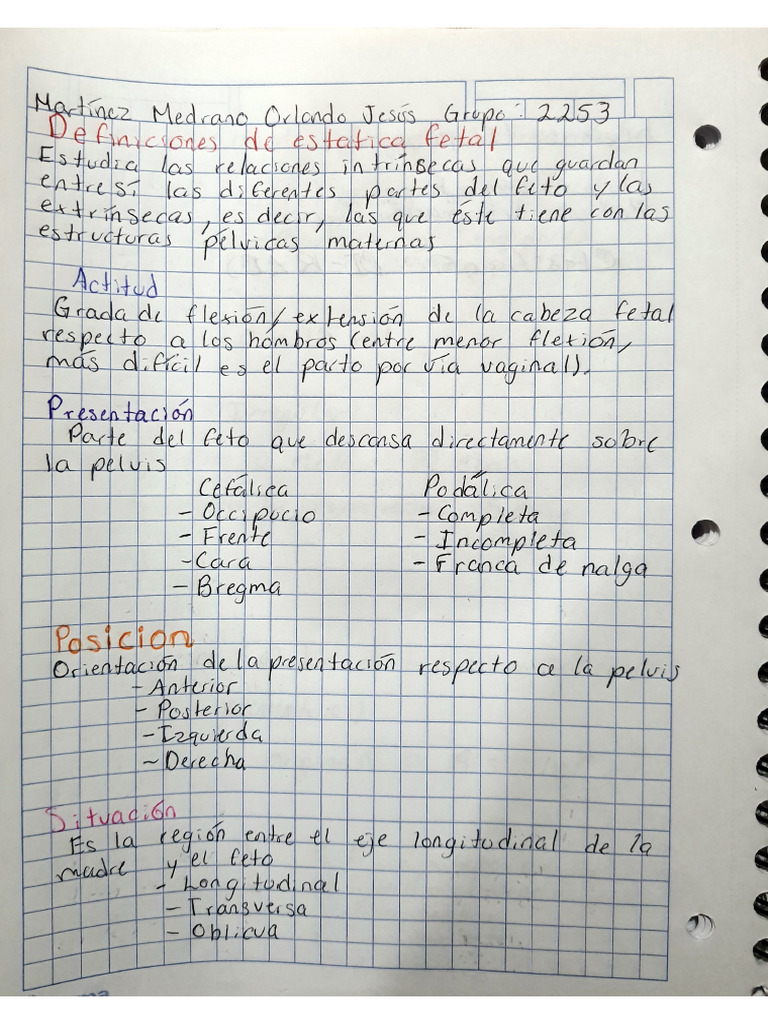 Martínez Medrano Orlando Jesús Grupo: 2253
Definiciones de estatica fetal
Estudia las relaciones intrínsecas que guardan
entresí las diferentes partes del feto y las
extrínsecas, es decir, las que éste tiene con las
estructuras pélvicas maternas
Actitud
Grada de flexión/extensión de la cabeza fetal
respecto a los hombros (entre menor flexión,
más difícil es el parto por vía vaginal).
Presentación
Parte del feto que descansa directamente sobre
la pelvis
Cefálica Podálica
- Occipucio - Completa
- Frente - Incompleta
- Cara - Franca de nalga
- Bregma
Posicion
Orientación de la presentación respecto a la pelvis
- Anterior
- Posterior
- Izquierda
~ Derecha
Situación
Es la región entre el eje longitudinal de la
madre y el feto
- Longitudinal
- Transversa
- Oblicua